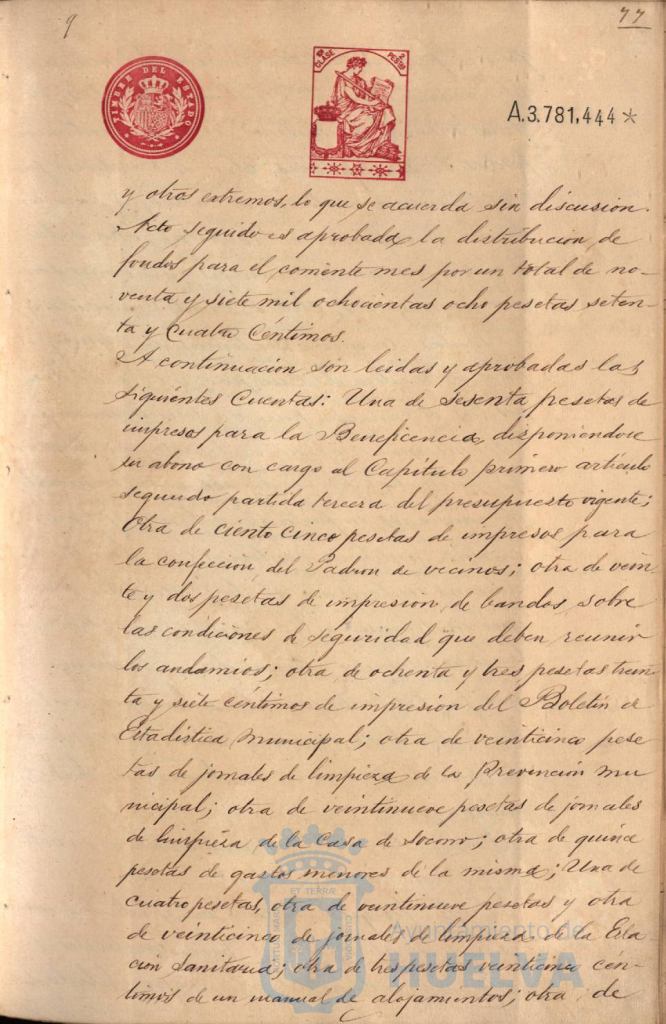 9
77
TIMBRE DEL ESTADO
10ª CLASE 2 PESTAS
A.3.781,444*
y otros extremos, lo que se acuerda sin discusion.
Acto seguido es aprobada la distribucion de
fondos para el corriente mes por un total de no-
venta y siete mil ochocientas ocho pesetas seten-
ta y cuatro céntimos.
A continuacion son leidas y aprobadas las
siguientes cuentas: Una de sesenta pesetas de
impresos para la Beneficencia, disponiendose
su abono con cargo al Capítulo primero articulo
segundo partida tercera del presupuesto vigente;
otra de ciento cinco pesetas de impresos para
la confeccion del Padron de vecinos; otra de vein-
te y dos pesetas de impresion de bandos sobre
las condiciones de seguridad que deben reunir
los andamios; otra de ochenta y tres pesetas trein-
ta y siete céntimos de impresion del Boletin de
Estadistica municipal; otra de veinticinco pese
tas de jornales de limpieza de la Prevención mu
nicipal; otra de veintinueve pesetas de jornales
de limpieza de la Casa de Socorro; otra de quince
pesetas de gastos menores de la misma; Una de
cuatro pesetas, otra de veintinueve pesetas y otra
de veinticinco de jornales de limpieza de la Esta
ción Sanitaria; otra de tres pesetas veinticinco cén-
timos de un manual de alojamientos; otra de
Ayuntamiento de
HUELVA